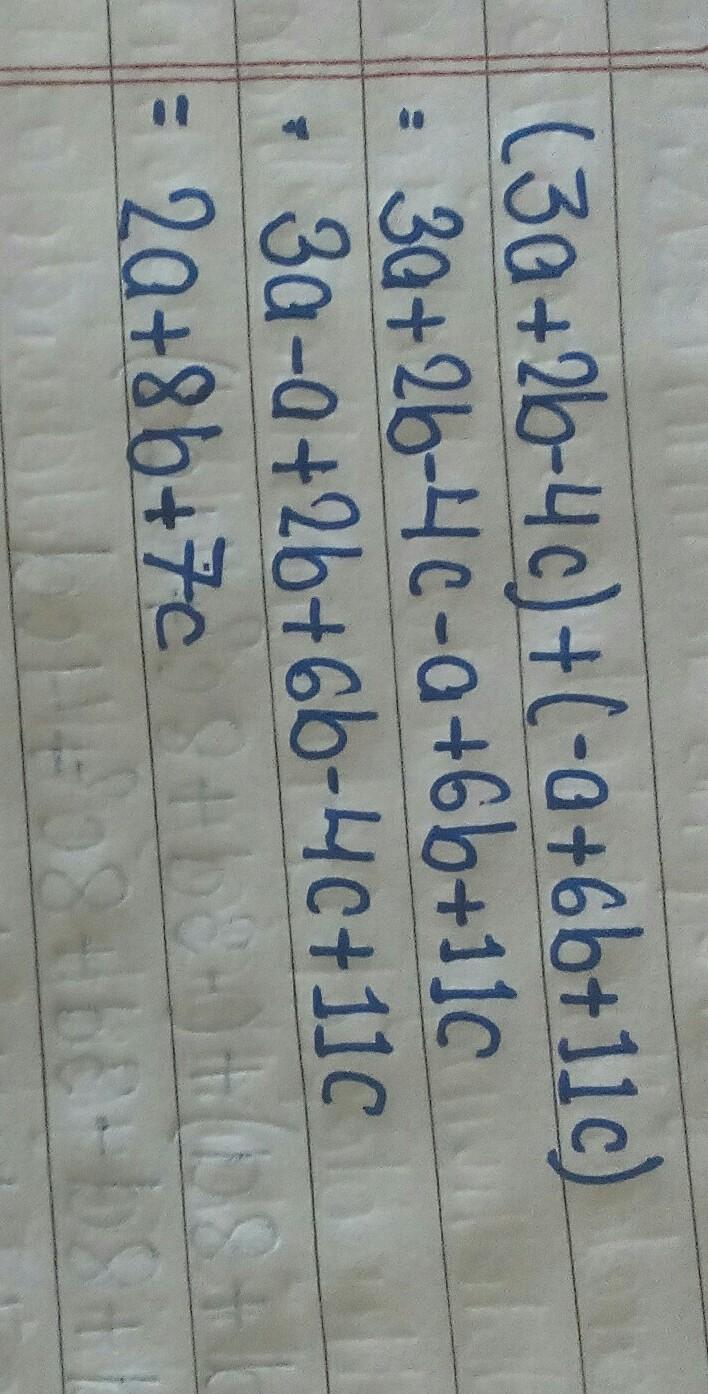 (3a+2b-4c)+(-a+6b+11c)
= 3a+2b-4c-a+6b+11c
= 3a-a+2b+6b-4c+11c
= 2a+8b+7c